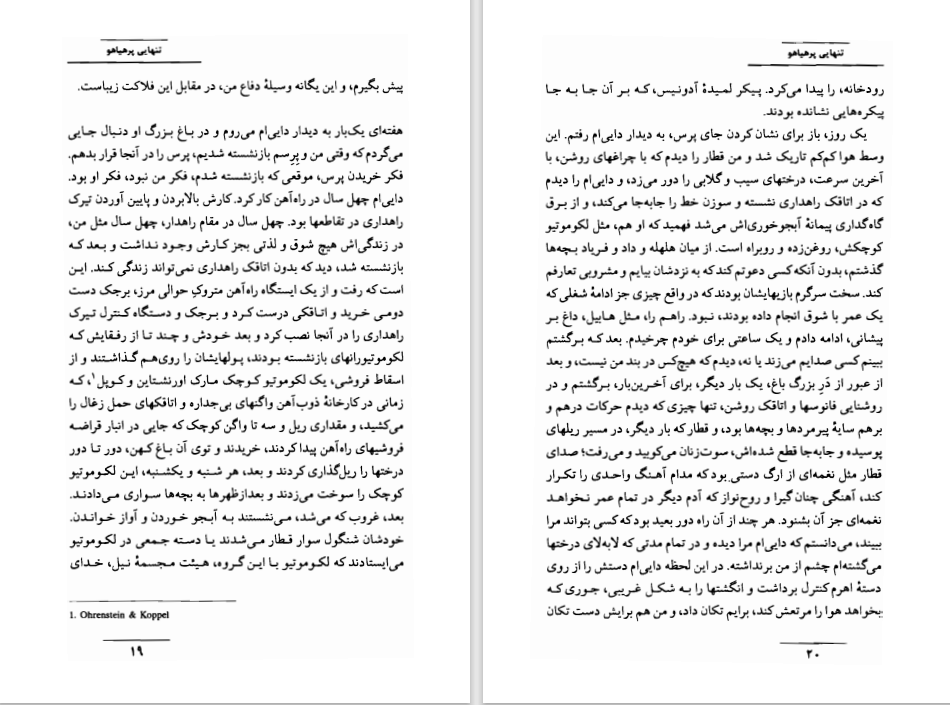 تنهایی پرهیاهو
پیش بگیرم، و این یگانه وسیلهٔ دفاع من، در مقابل این فلاکت زیباست.
هفته‌ای یک‌بار به دیدار دایی‌ام می‌روم و در باغ بزرگ او دنبال جایی
می‌گردم که وقتی من و پرِسم بازنشسته شدیم، پرس را در آنجا قرار بدهم.
فکر خریدن پرس، موقعی که بازنشسته شدم، فکر من نبود، فکر او بود.
دایی‌ام چهل سال در راه‌آهن کار کرد. کارش بالابردن و پایین آوردن تیرک
راهداری در تقاطعها بود. چهل سال در مقام راهدار، چهل سال مثل من،
در زندگی‌اش هیچ شوق و لذتی بجز کارش وجود نداشت و بعد که
بازنشسته شد، دید که بدون اتاقک راهداری نمی‌تواند زندگی کند. این
است که رفت و از یک ایستگاه راه‌آهن متروکِ حوالی مرز، برجک دست
دومی خرید و اتاقکی درست کرد و برجک و دستگاه کنترل تیرک
راهداری را در آنجا نصب کرد و بعد خودش و چند تا از رفقایش که
لکوموتیورانهای بازنشسته بودند، پولهایشان را روی‌هم گذاشتند و از
اسقاط فروشی، یک لکوموتیو کوچک مارک اورنشتاین و کوپل۱، که
زمانی در کارخانهٔ ذوب‌آهن واگنهای بی‌جداره و اتاقکهای حمل زغال را
می‌کشید، و مقداری ریل و سه تا واگن کوچک که جایی در انبار قراضه
فروشیهای راه‌آهن پیدا کردند، خریدند و توی آن باغ کهن، دور تا دور
درختها را ریل‌گذاری کردند و بعد، هر شنبه و یکشنبه، این لکوموتیو
کوچک را سوخت می‌زدند و بعدازظهرها به بچه‌ها سواری می‌دادند.
بعد، غروب که می‌شد، می‌نشستند به آبجو خوردن و آواز خواندن.
خودشان شنگول سوار قطار می‌شدند یا دسته جمعی در لکوموتیو
می‌ایستادند که لکوموتیو با این گروه، هیئت مجسمهٔ نیل، خدای
1. Ohrenstein & Koppel
۱۹
تنهایی پرهیاهو
رودخانه، را پیدا می‌کرد. پیکر لمیدهٔ آدونیس، که بر آن جا به جا
پیکره‌هایی نشانده بودند.
یک روز، باز برای نشان کردن جای پرس، به دیدار دایی‌ام رفتم. این
وسط هوا کم‌کم تاریک شد و من قطار را دیدم که با چراغهای روشن، با
آخرین سرعت، درختهای سیب و گلابی را دور می‌زد، و دایی‌ام را دیدم
که در اتاقک راهداری نشسته و سوزن خط را جابه‌جا می‌کند، و از برق
گاه‌گداری پیمانهٔ آبجوخوری‌اش می‌شد فهمید که او هم، مثل لکوموتیو
کوچکش، روغن‌زده و روبراه است. از میان هلهله و داد و فریاد بچه‌ها
گذشتم، بدون آنکه کسی دعوتم کند که به نزدشان بیایم و مشروبی تعارفم
کند. سخت سرگرم بازیهایشان بودند که در واقع چیزی جز ادامهٔ شغلی که
یک عمر با شوق انجام داده بودند، نبود. راهم را، مثل هابیل، داغ بر
پیشانی، ادامه دادم و یک ساعتی برای خودم چرخیدم. بعد که برگشتم
ببینم کسی صدایم می‌زند یا نه، دیدم که هیچ‌کس در بند من نیست، و بعد
از عبور از دَرِ بزرگ باغ، یک بار دیگر، برای آخرین‌بار، برگشتم و در
روشنایی فانوسها و اتاقک روشن، تنها چیزی که دیدم حرکات درهم و
برهم سایهٔ پیرمردها و بچه‌ها بود، و قطار که بار دیگر، در مسیر ریلهای
پوسیده و جابه‌جا قطع شده‌اش، سوت‌زنان می‌کوبید و می‌رفت؛ صدای
قطار مثل نغمه‌ای از ارگ دستی بود که مدام آهنگ واحدی را تکرار
کند، آهنگی چنان گیرا و روح‌نواز که آدم دیگر در تمام عمر نخواهد
نغمه‌ای جز آن بشنود. هر چند از آن راه دور بعید بود که کسی بتواند مرا
ببیند، می‌دانستم که دایی‌ام مرا دیده و در تمام مدتی که لابه‌لای درختها
می‌گشته‌ام چشم از من برنداشته. در این لحظه دایی‌ام دستش را از روی
دستهٔ اهرم کنترل برداشت و انگشتها را به شکل غریبی، جوری که
بخواهد هوا را مرتعش کند، برایم تکان داد، و من هم برایش دست تکان
۲۰